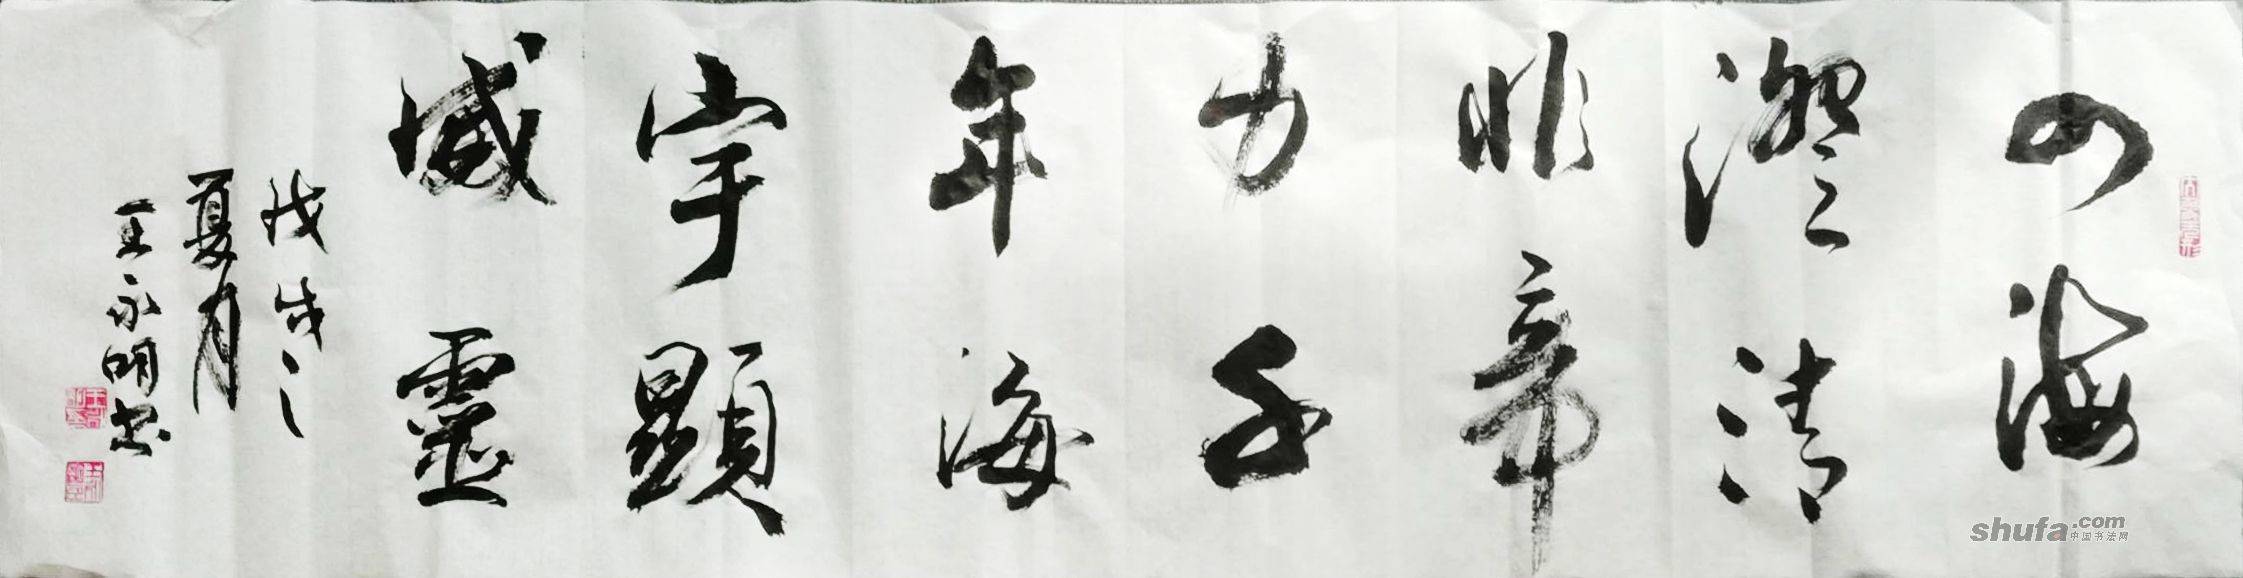 四海
澄清
非帝
力千
年海
宇顯
威靈
戊戌之
夏月
王永明书
shufa.com
中国书法网